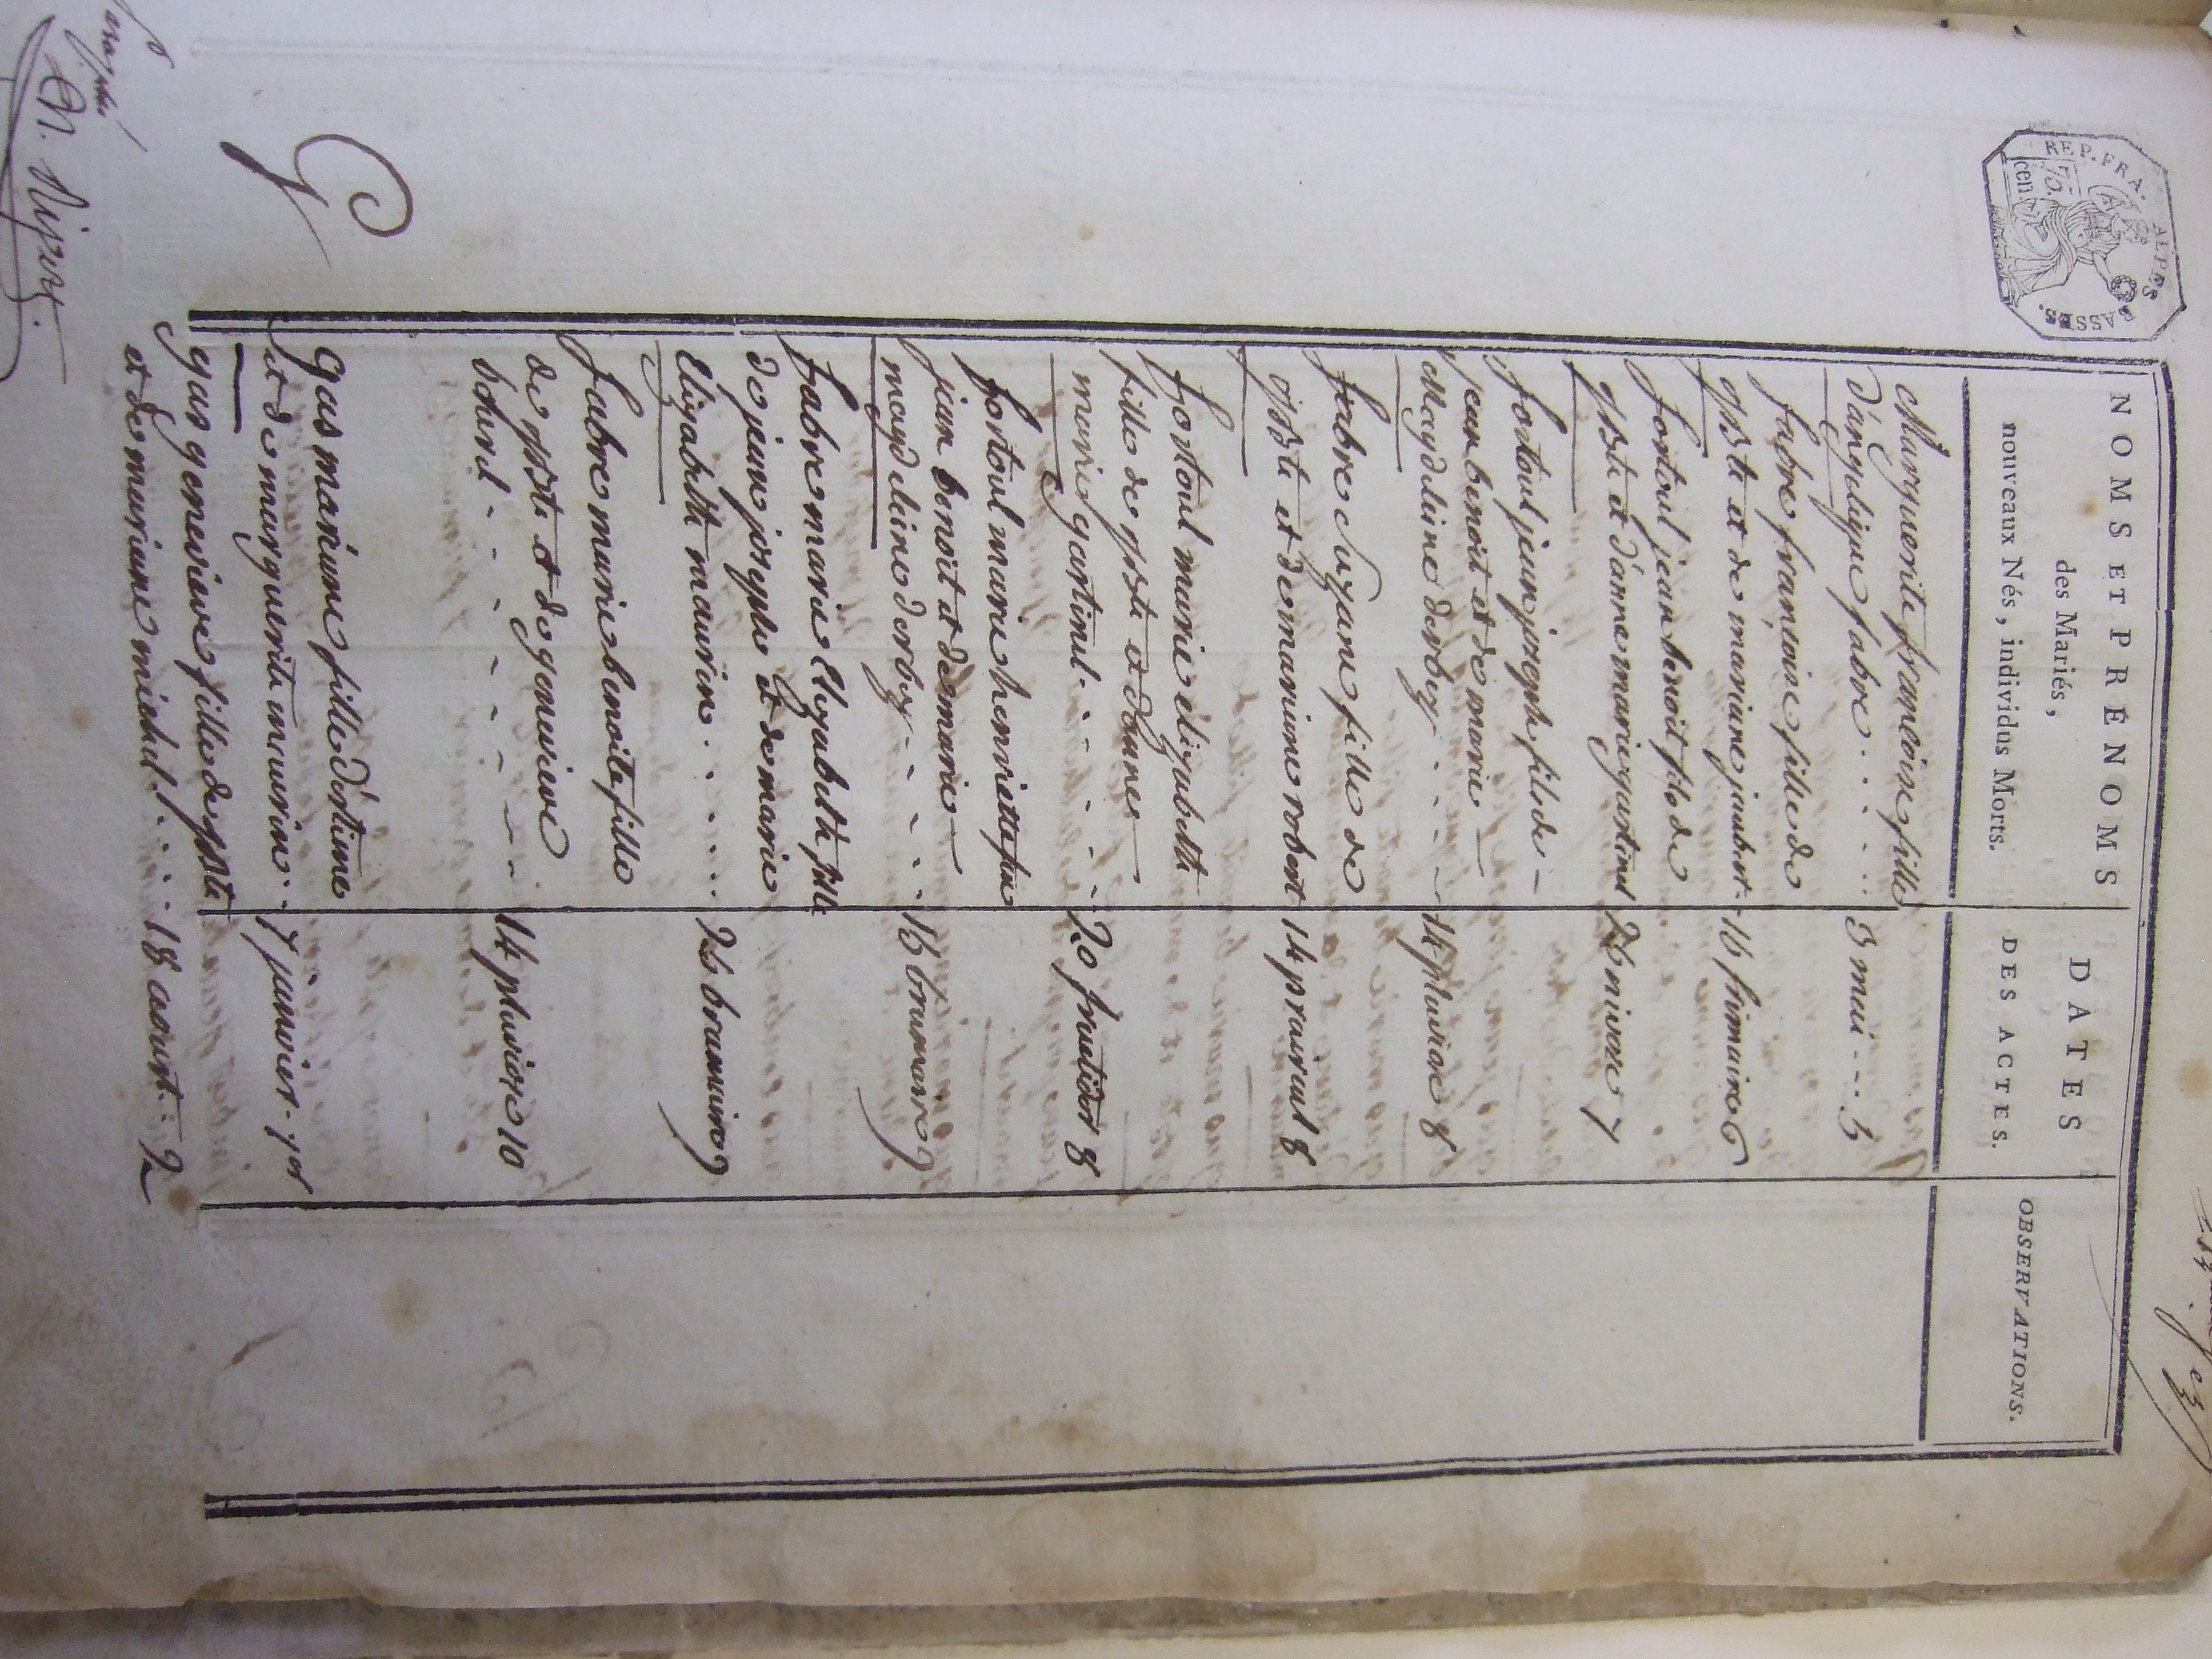 REP. FRA.
ALPES
BASSES.
75.
cen
NOMS ET PRÉNOMS
des Mariés,
nouveaux Nés, individus Morts.
DATES
DES ACTES.
OBSERVATIONS.
Marguerite francoise fille
d'angelique fabre . . . . . 3 mai - - 5
fabre françoise fille de
jpbte et de mariane jaubert - 16 frimaire 6
fortoul jean benoit fils de
jpbte et d'anne marie gastinel 26 nivose 7
fortoul jean joseph fils de —
jean benoit et de marie —
Magdeleine derbez . . . - 14 pluviose 8
fabre Suzane fille de
jpbte et de mariane robert 14 prairial 8
fortoul marie elizabeth
fille de jpbte et d'anne
marie gastinel . . . . . 20 fructidor 8
fortoul marie henriette fille
jean benoit et de marie —
magdeleine derbez - . . . 16 brumaire 9
fabre marie Elizabeth fille
de jean joseph et de marie
Elizabeth maurin . . . . . 26 brumaire 9
fabre marie benoite fille
de jpbte et de genevieve
14 pluviose 10
G
gas mariane fille d'estienne
et de marguerite maurin . . 7 janvier - 1er
gas genevieve fille de jpbte
et de mariane michel . . . . 18 aoust . 2